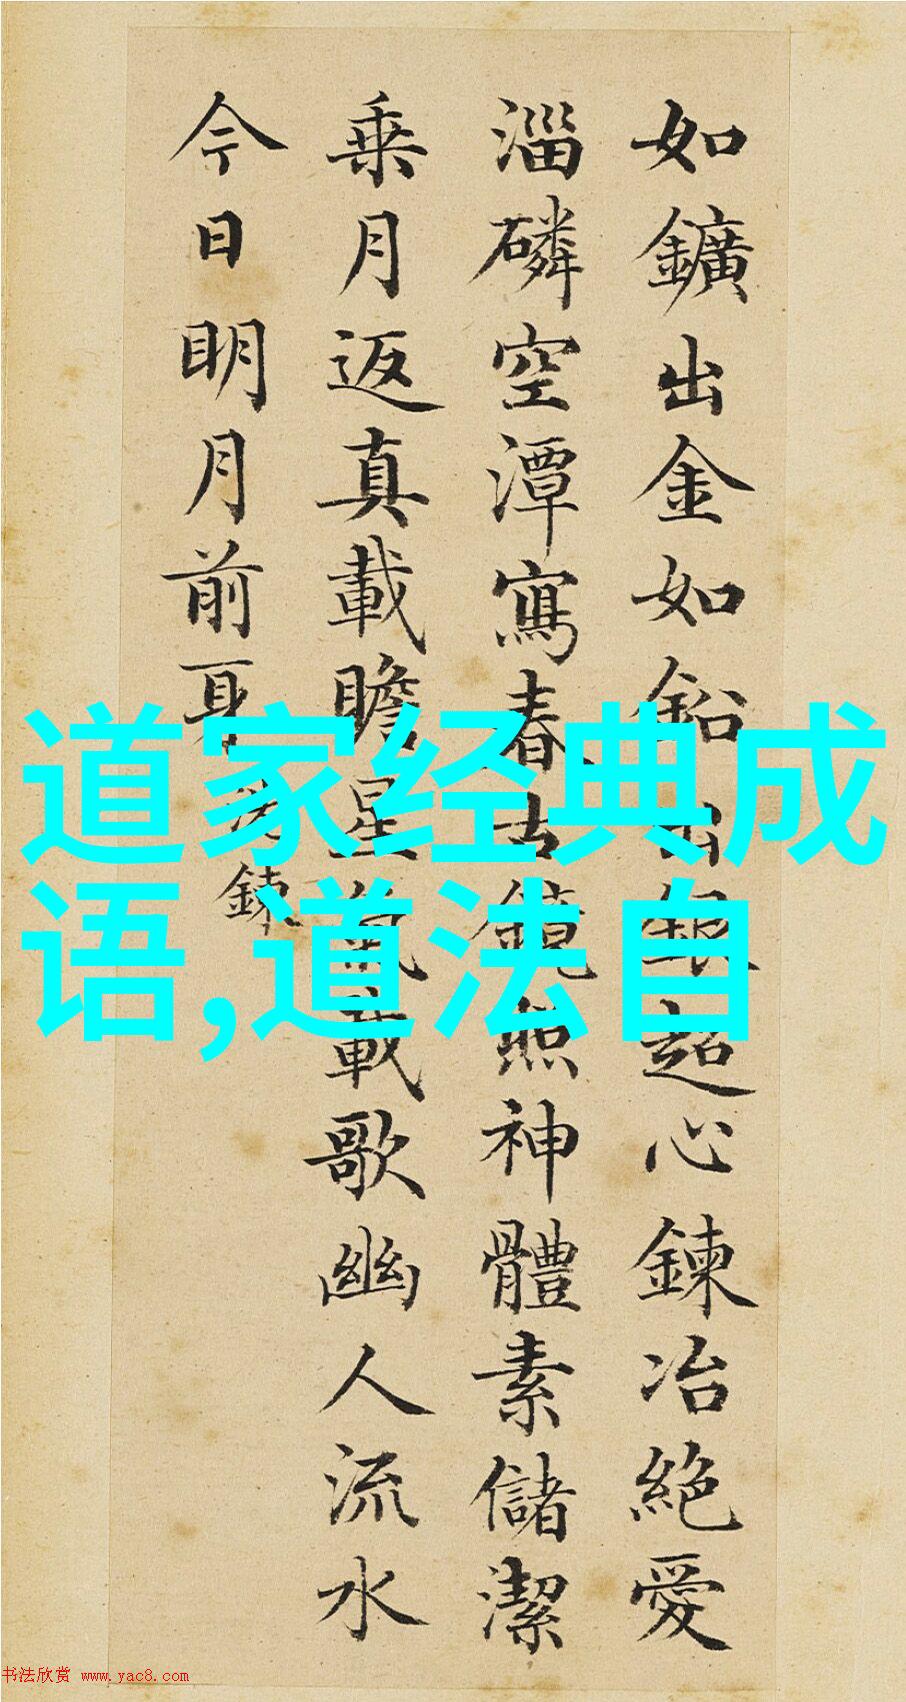 如鑛出金如鉛出銀超心鍊冶絶愛
淄磷空潭寫春古鏡照神體素儲潔
乗月返真載瞻星氣載歌幽人流水
今日明月前身洗鍊
道家经典成
语,道法自
书法欣赏 www.yac8.com